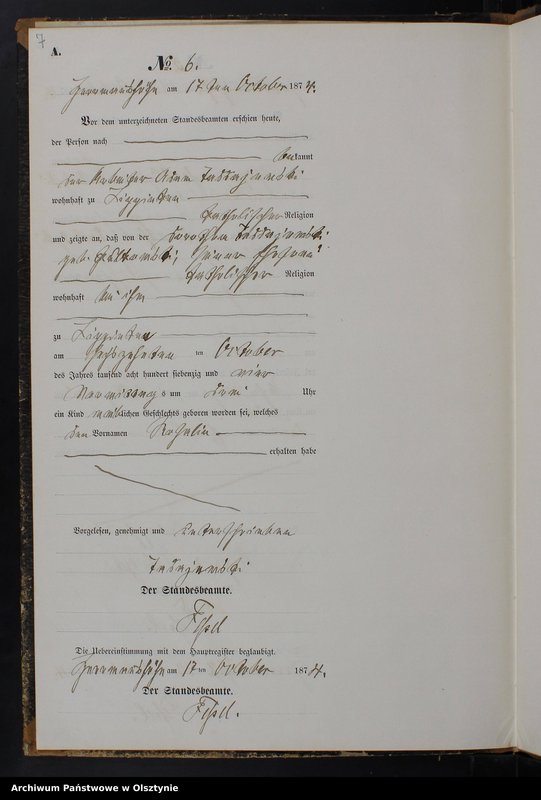 7
A.
No. 6.
Hermannshöhe am 17 ten October 1874.
Vor dem unterzeichneten Standesbeamten erschien heute,
der Person nach
bekannt
der Arbeiter Adam
wohnhaft zu
katholischer Religion
und zeigte an, daß von der
geb. seiner Ehefrau
katholischer Religion
wohnhaft bei ihm
zu
am sechszehnten ten October
des Jahres tausend acht hundert siebenzig und vier
Vormittags um drei Uhr
ein Kind weiblichen Geschlechts geboren worden sei, welches
den Vornamen Rosalie
erhalten habe
Vorgelesen, genehmigt und unterschrieben
Der Standesbeamte.
Die Uebereinstimmung mit dem Hauptregister beglaubigt.
Hermannshöhe am 17 ten October 1874.
Der Standesbeamte.
Archiwum Państwowe w Olsztynie